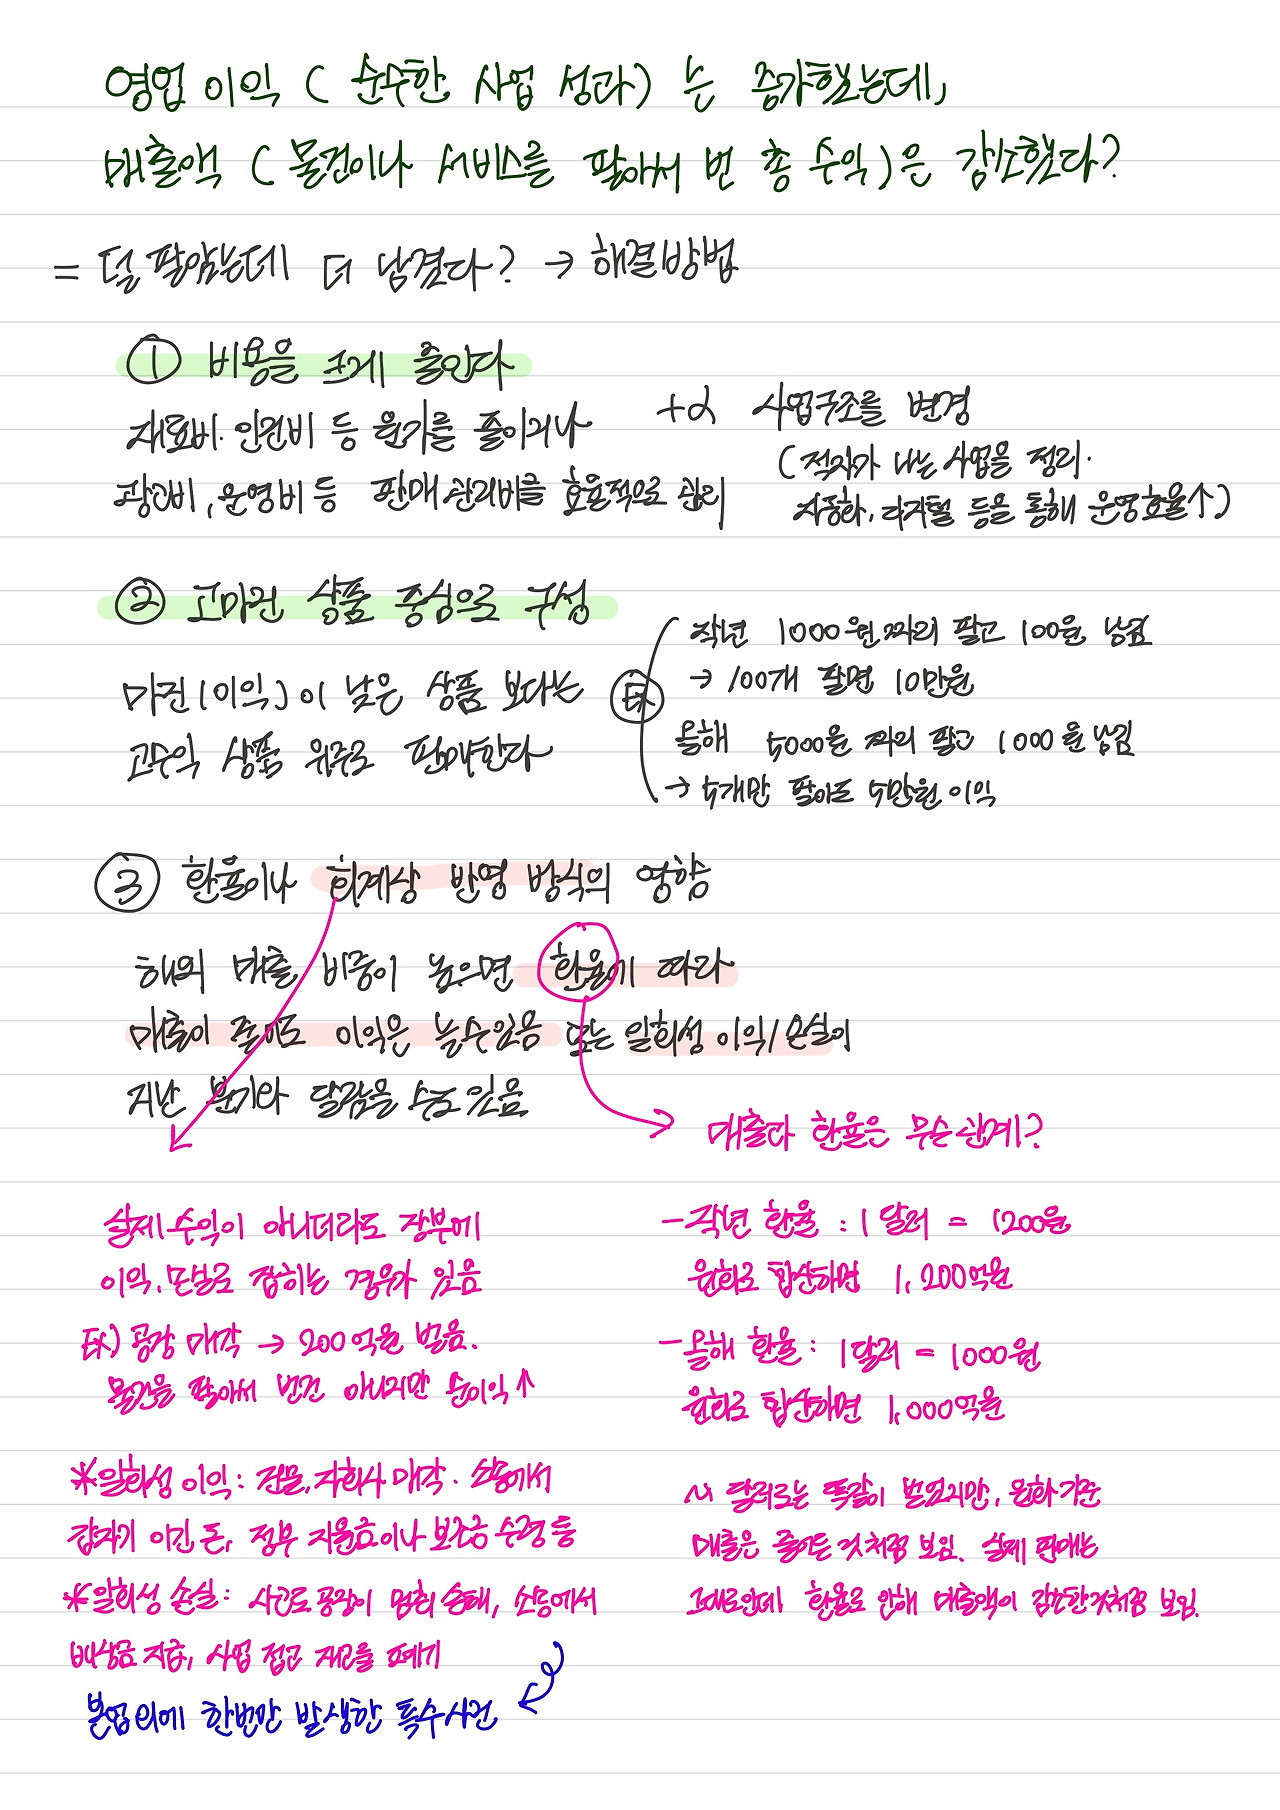 영업 이익 ( 순수한 사업 성과 ) 는 증가했는데,
매출액 ( 물건이나 서비스를 팔아서 번 총 수익 ) 은 감소했다?
= 덜 팔았는데 더 남겼다? → 해결방법
① 비용을 크게 줄인다
재료비·인건비 등 원가를 줄이거나
광고비, 운영비 등 판매 관리비를 효율적으로 관리
+α 사업구조를 변경
( 적자가 나는 사업을 정리.
자동화, 디지털 등을 통해 운영효율↑ )
② 고마진 상품 중심으로 구성
마진(이익)이 낮은 상품 보다는
고수익 상품 위주로 판매한다
EX
작년 1000원짜리 팔고 100원 남김
→ 100개 팔면 10만원
올해 5000원 짜리 팔고 1000원 남김
→ 5개만 팔아도 5만원 이익
③ 환율이나 회계상 반영 방식의 영향
해외 매출 비중이 높으면 환율에 따라
매출이 줄어도 이익은 늘수있음 또는 일회성 이익/손실이
지난 분기와 달랐을 수도 있음
실제 수익이 아니더라도 장부에
이익·손실로 잡히는 경우가 있음
EX) 공장 매각 → 200억원 벌음.
물건을 팔아서 번건 아니지만 순이익↑
*일회성 이익: 건물, 자회사 매각. 소송에서
갑자기 이긴 돈, 정부 지원금이나 보조금 수령 등
*일회성 손실: 사고로 공장이 멈춰 손해, 소송에서
배상금 지급, 사업 접고 재고를 폐기
본업 외에 한번만 발생한 특수사건
매출과 환율은 무슨관계?
- 작년 환율 : 1달러 = 1200원
원화로 합산하면 1,200억원
- 올해 환율 : 1달러 = 1000원
원화로 합산하면 1,000억원
~ 달러로는 똑같이 벌었지만, 원화기준
매출은 줄어든 것처럼 보임. 실제 판매는
그대로인데 환율로 인해 매출액이 감소한것처럼 보임.